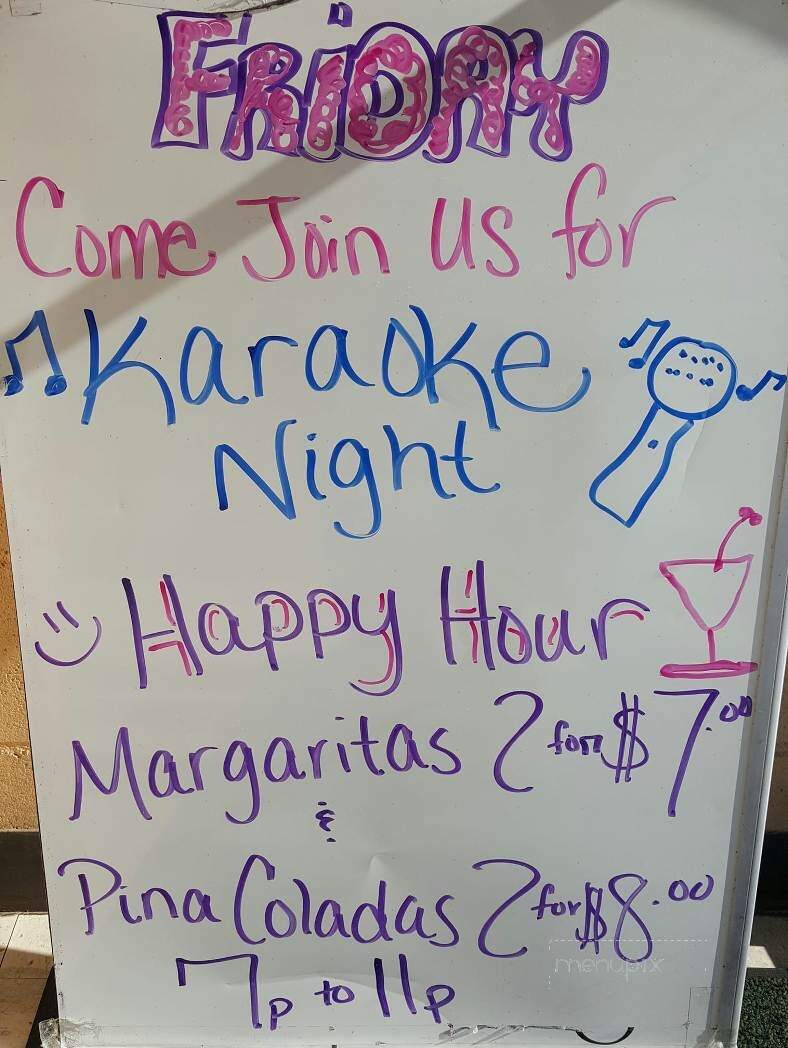 FRIDAY
Come Join Us for
Karaoke
Night
Happy Hour
Margaritas 2 for $7.00
&
Pina Coladas 2 for $8.00
7p to 11p
menupix